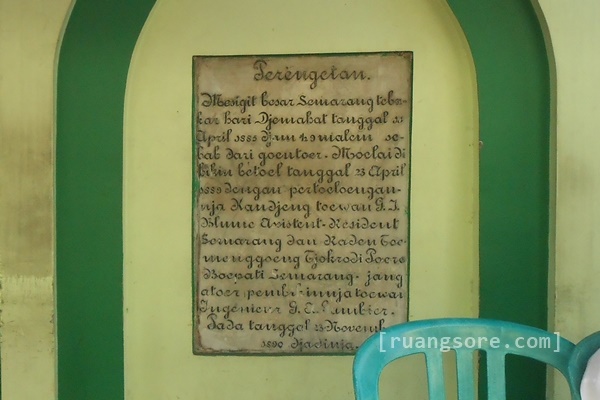 Perengetan.
Mesigit besar Semarang teba-
kar hari Djemahat tanggal 11
April 1885 djam malem se-
bab dari goentoer. Moelai di
bikin betoel tanggal 23 April
1889 dengan pertoeloengan-
nja Kandjeng toewan G. I.
Blume Asistent-Resident
Semarang dan Raden Toe-
menggoeng Tjokrodi Poero
Boepati Semarang. jang
atoer pembikinnja toewan
Ingenieur G. E.
Pada tanggal 23 Novemb
1890 djadinja.
[ruangsore.com]